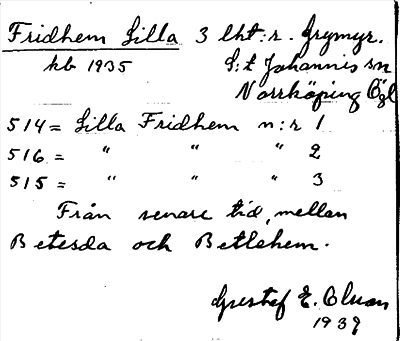 Fridhem Lilla 3 lht:r. Grymyr.
kb 1935 S:t Johannis sn
Norrköping Ögl
514 = Lilla Fridhem n:r 1
516 = " " " 2
515 = " " " 3
Från senare tid, mellan
Betesda och Betlehem.
Gustaf E. Olsson
1939